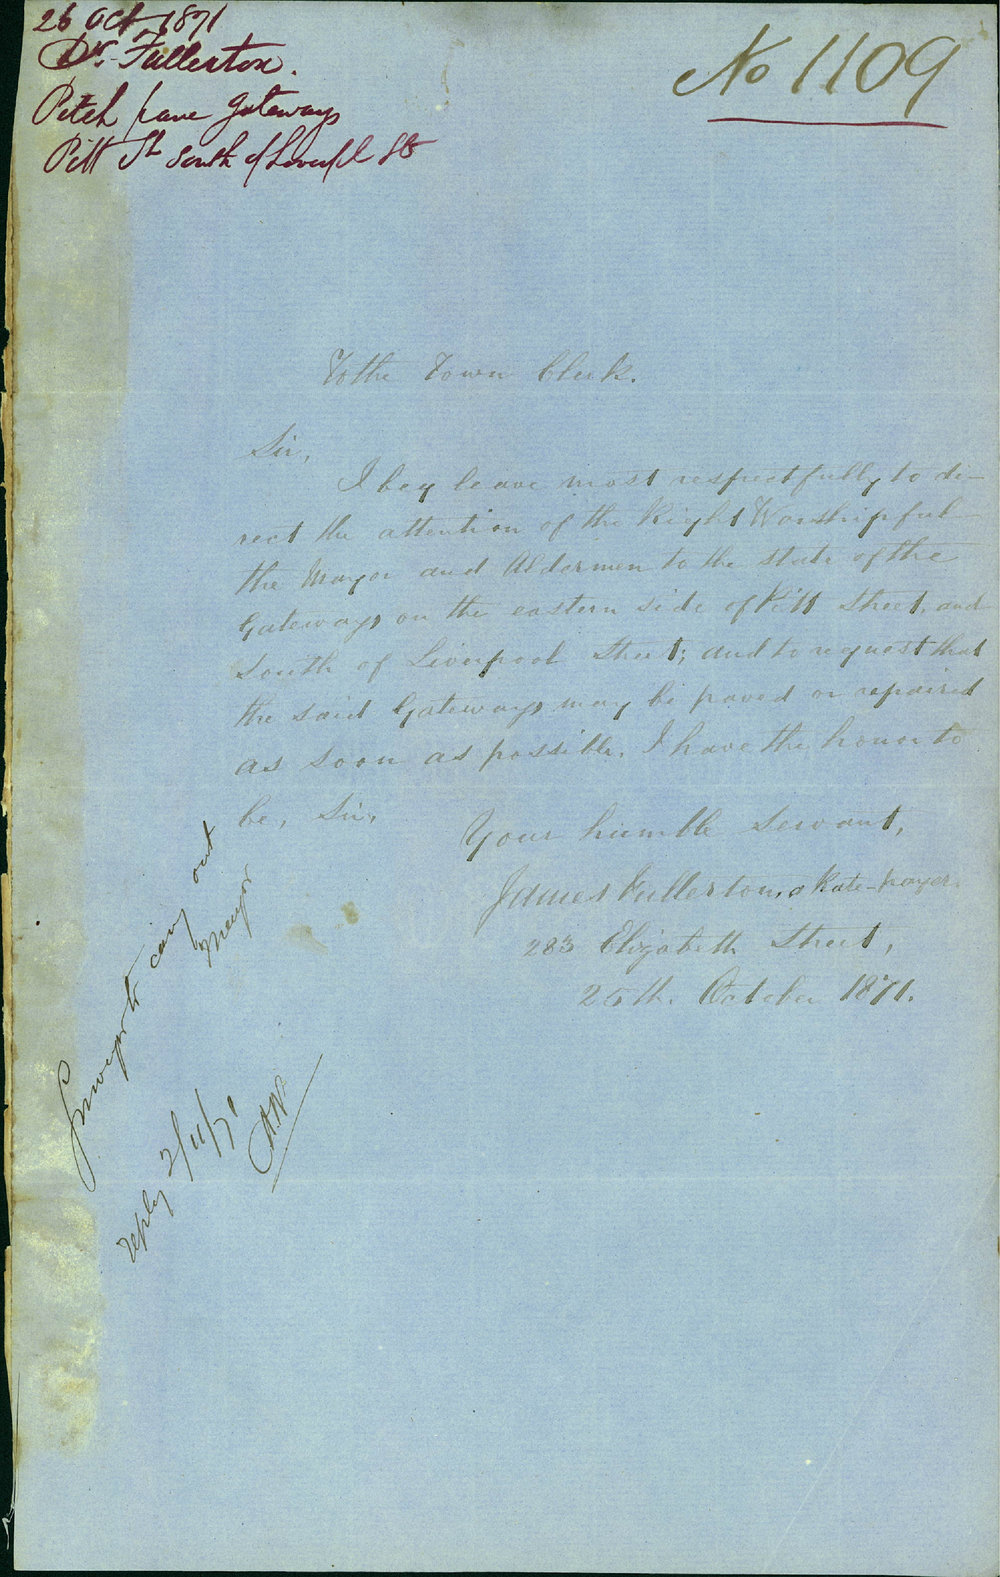 26 Oct 1871
Dr. Fullerton.
Pitch pave gateways
Pitt St South of Liverpl St
No 1109
To the Town Clerk.
Sir,
I beg leave most respectfully to di-
rect the attention of the Right Worshipful
the Mayor and Aldermen to the state of the
Gateways on the eastern side of Pitt Street, and
South of Liverpool Street; and to request that
the said Gateways may be paved or repaired
as soon as possible. I have the honor to
be, Sir,
Your humble servant,
James Fullerton, a Rate-payer.
283 Elizabeth Street,
25th. October 1871.
to carry out
Mayor
reply 2/11/71